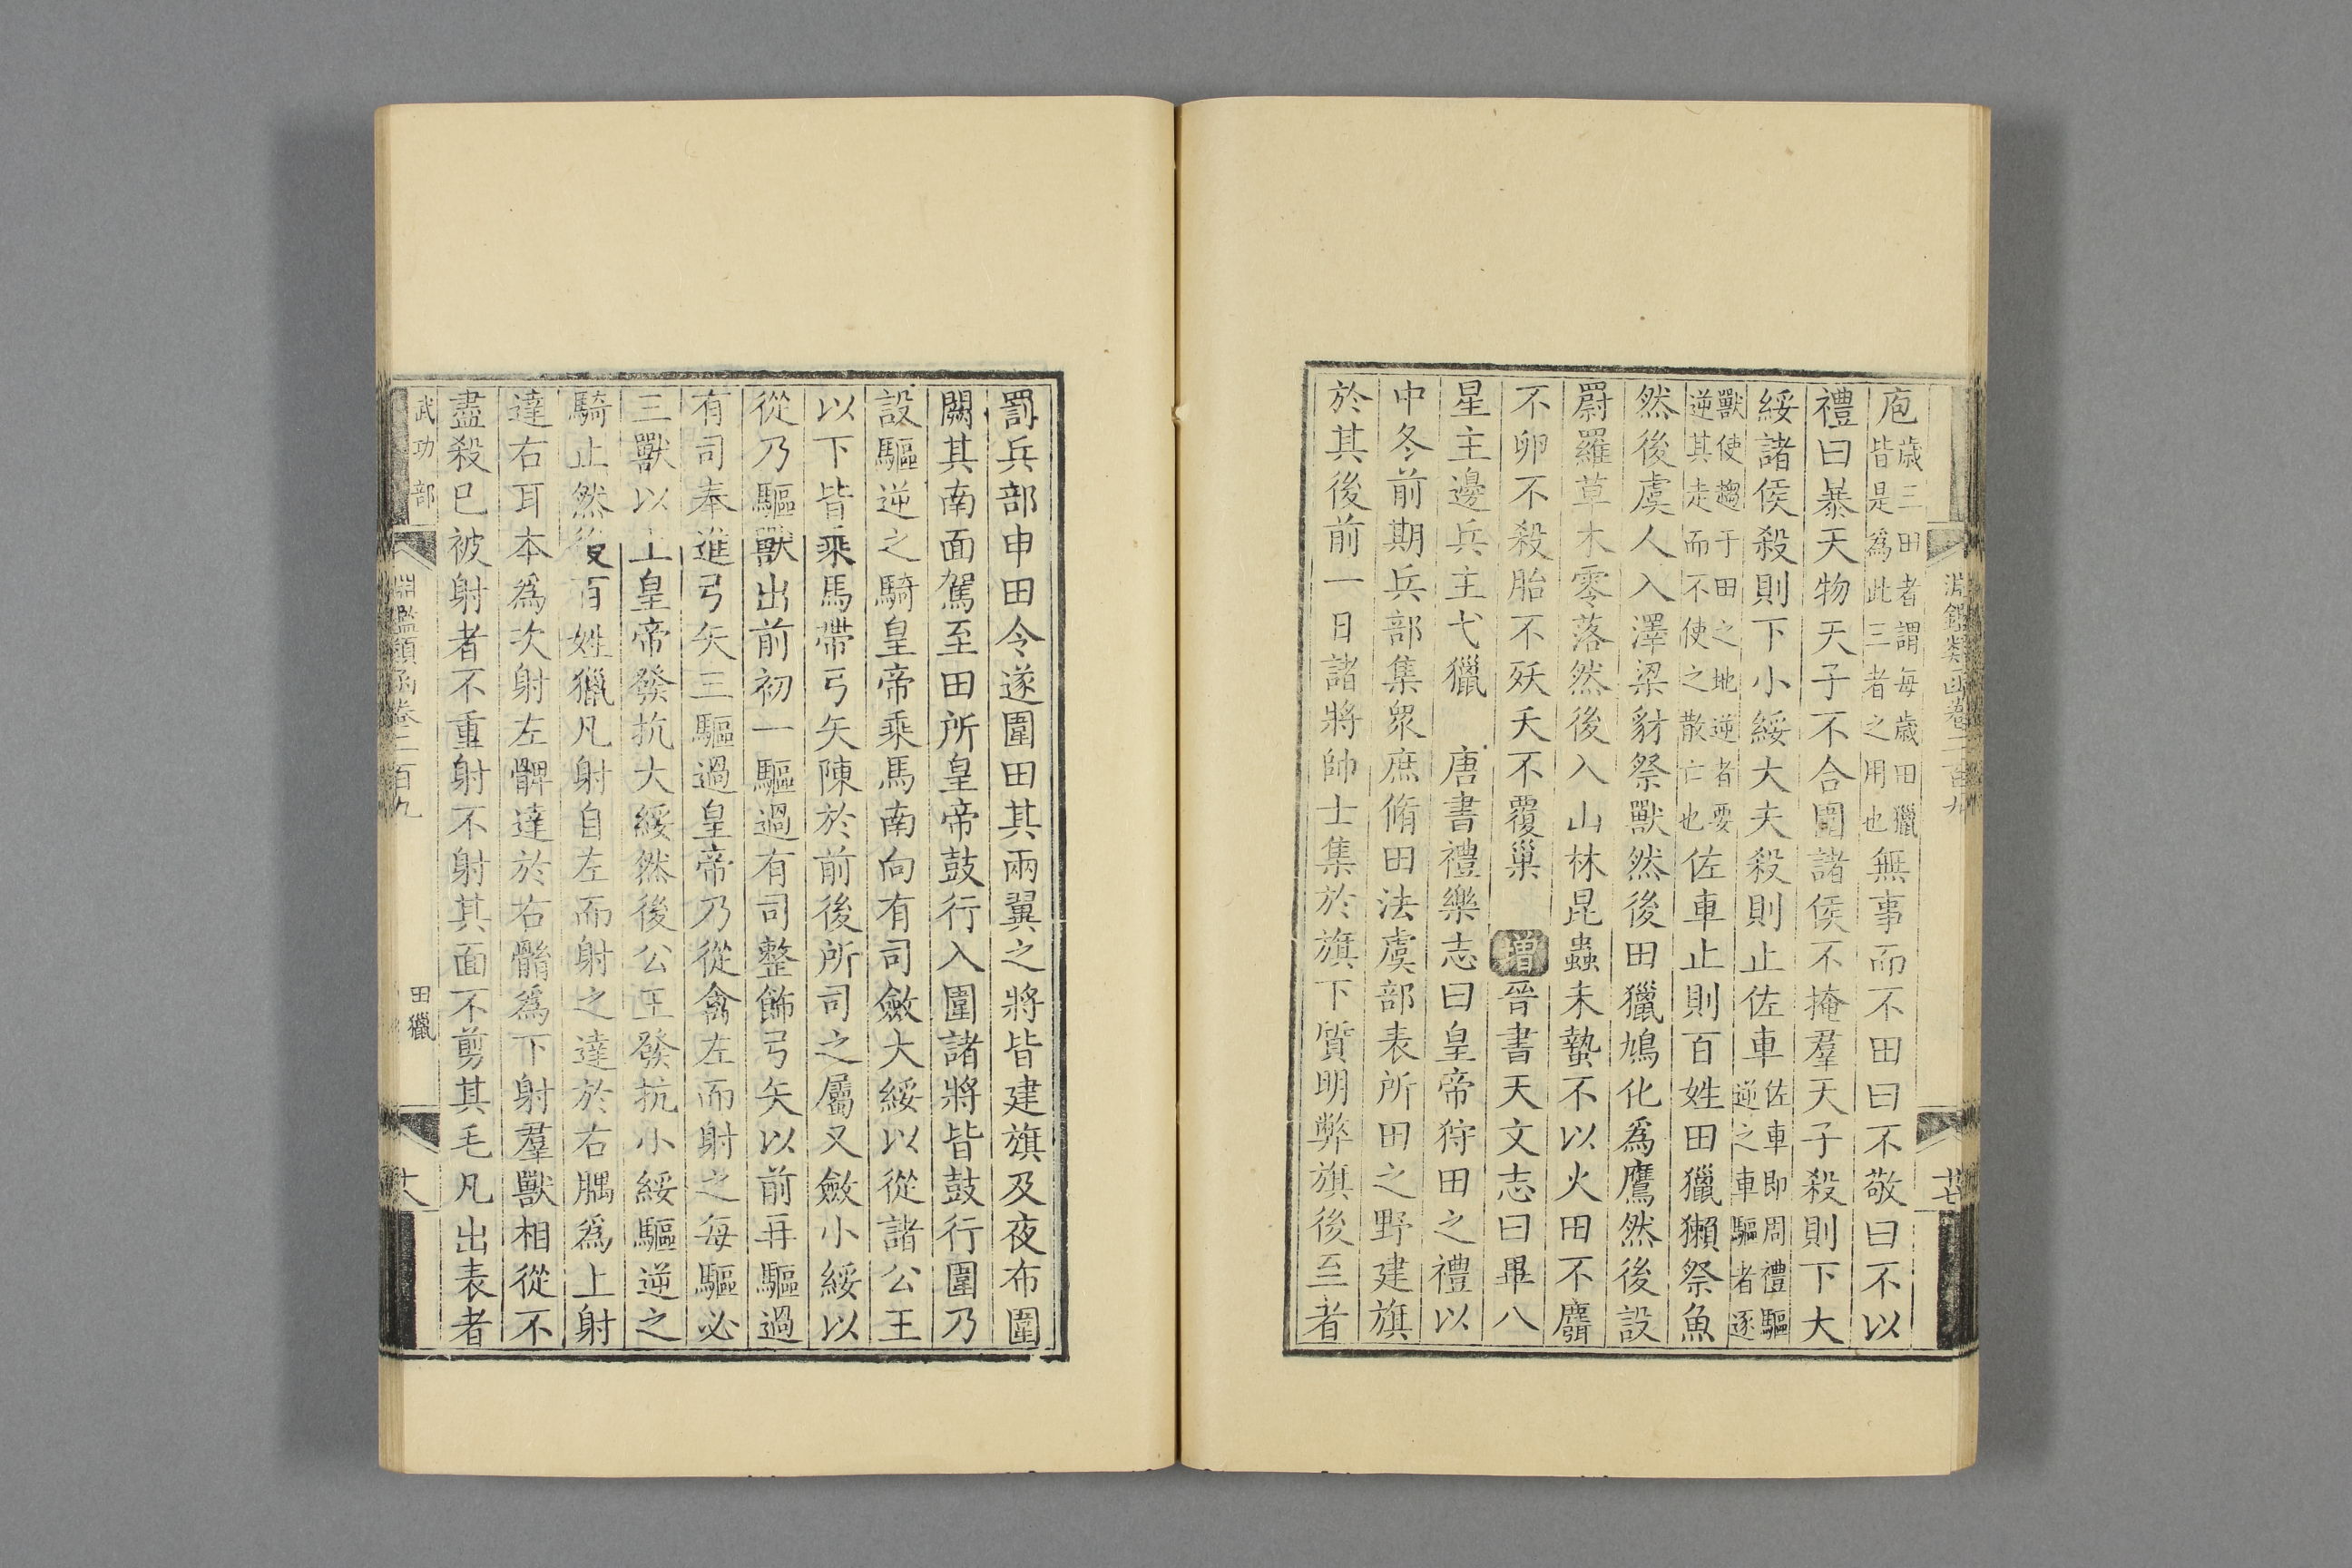 淵鑑類函卷二百九
庖歲三田者謂每歲田獵皆是為此三者之用也無事而不田曰不敬曰不以
禮曰暴天物天子不合圍諸侯不掩羣天子殺則下大
綏諸侯殺則下小綏大夫殺則止佐車佐車即周禮驅逆之車驅者逐
獸使趨于田之地逆者要逆其走而不使之散亡也佐車止則百姓田獵獺祭魚
然後虞人入澤梁豺祭獸然後田獵鳩化為鷹然後設
罻羅草木零落然後入山林昆蟲未蟄不以火田不麛
不卵不殺胎不殀夭不覆巢 增晉書天文志曰畢八
星主邊兵主弋獵 唐書禮樂志曰皇帝狩田之禮以
中冬前期兵部集眾庶脩田法虞部表所田之野建旗
於其後前一日諸將帥士集於旗下質明弊旗後至者
罰兵部申田令遂圍田其兩翼之將皆建旗及夜布圍
闕其南面駕至田所皇帝鼓行入圍諸將皆鼓行圍乃
設驅逆之騎皇帝乘馬南向有司斂大綏以從諸公王
以下皆乘馬帶弓矢陳於前後所司之屬又斂小綏以
從乃驅獸出前初一驅過有司整飾弓矢以前再驅過
有司奉進弓矢三驅過皇帝乃從禽左而射之每驅必
三獸以上皇帝發抗大綏然後公王發抗小綏驅逆之
騎止然後百姓獵凡射自左而射之達於右腢為上射
達右耳本為次射左髀達於右䯚為下射羣獸相從不
盡殺已被射者不重射不射其面不剪其毛凡出表者
武功部
淵鑑類函卷二百九
田獵